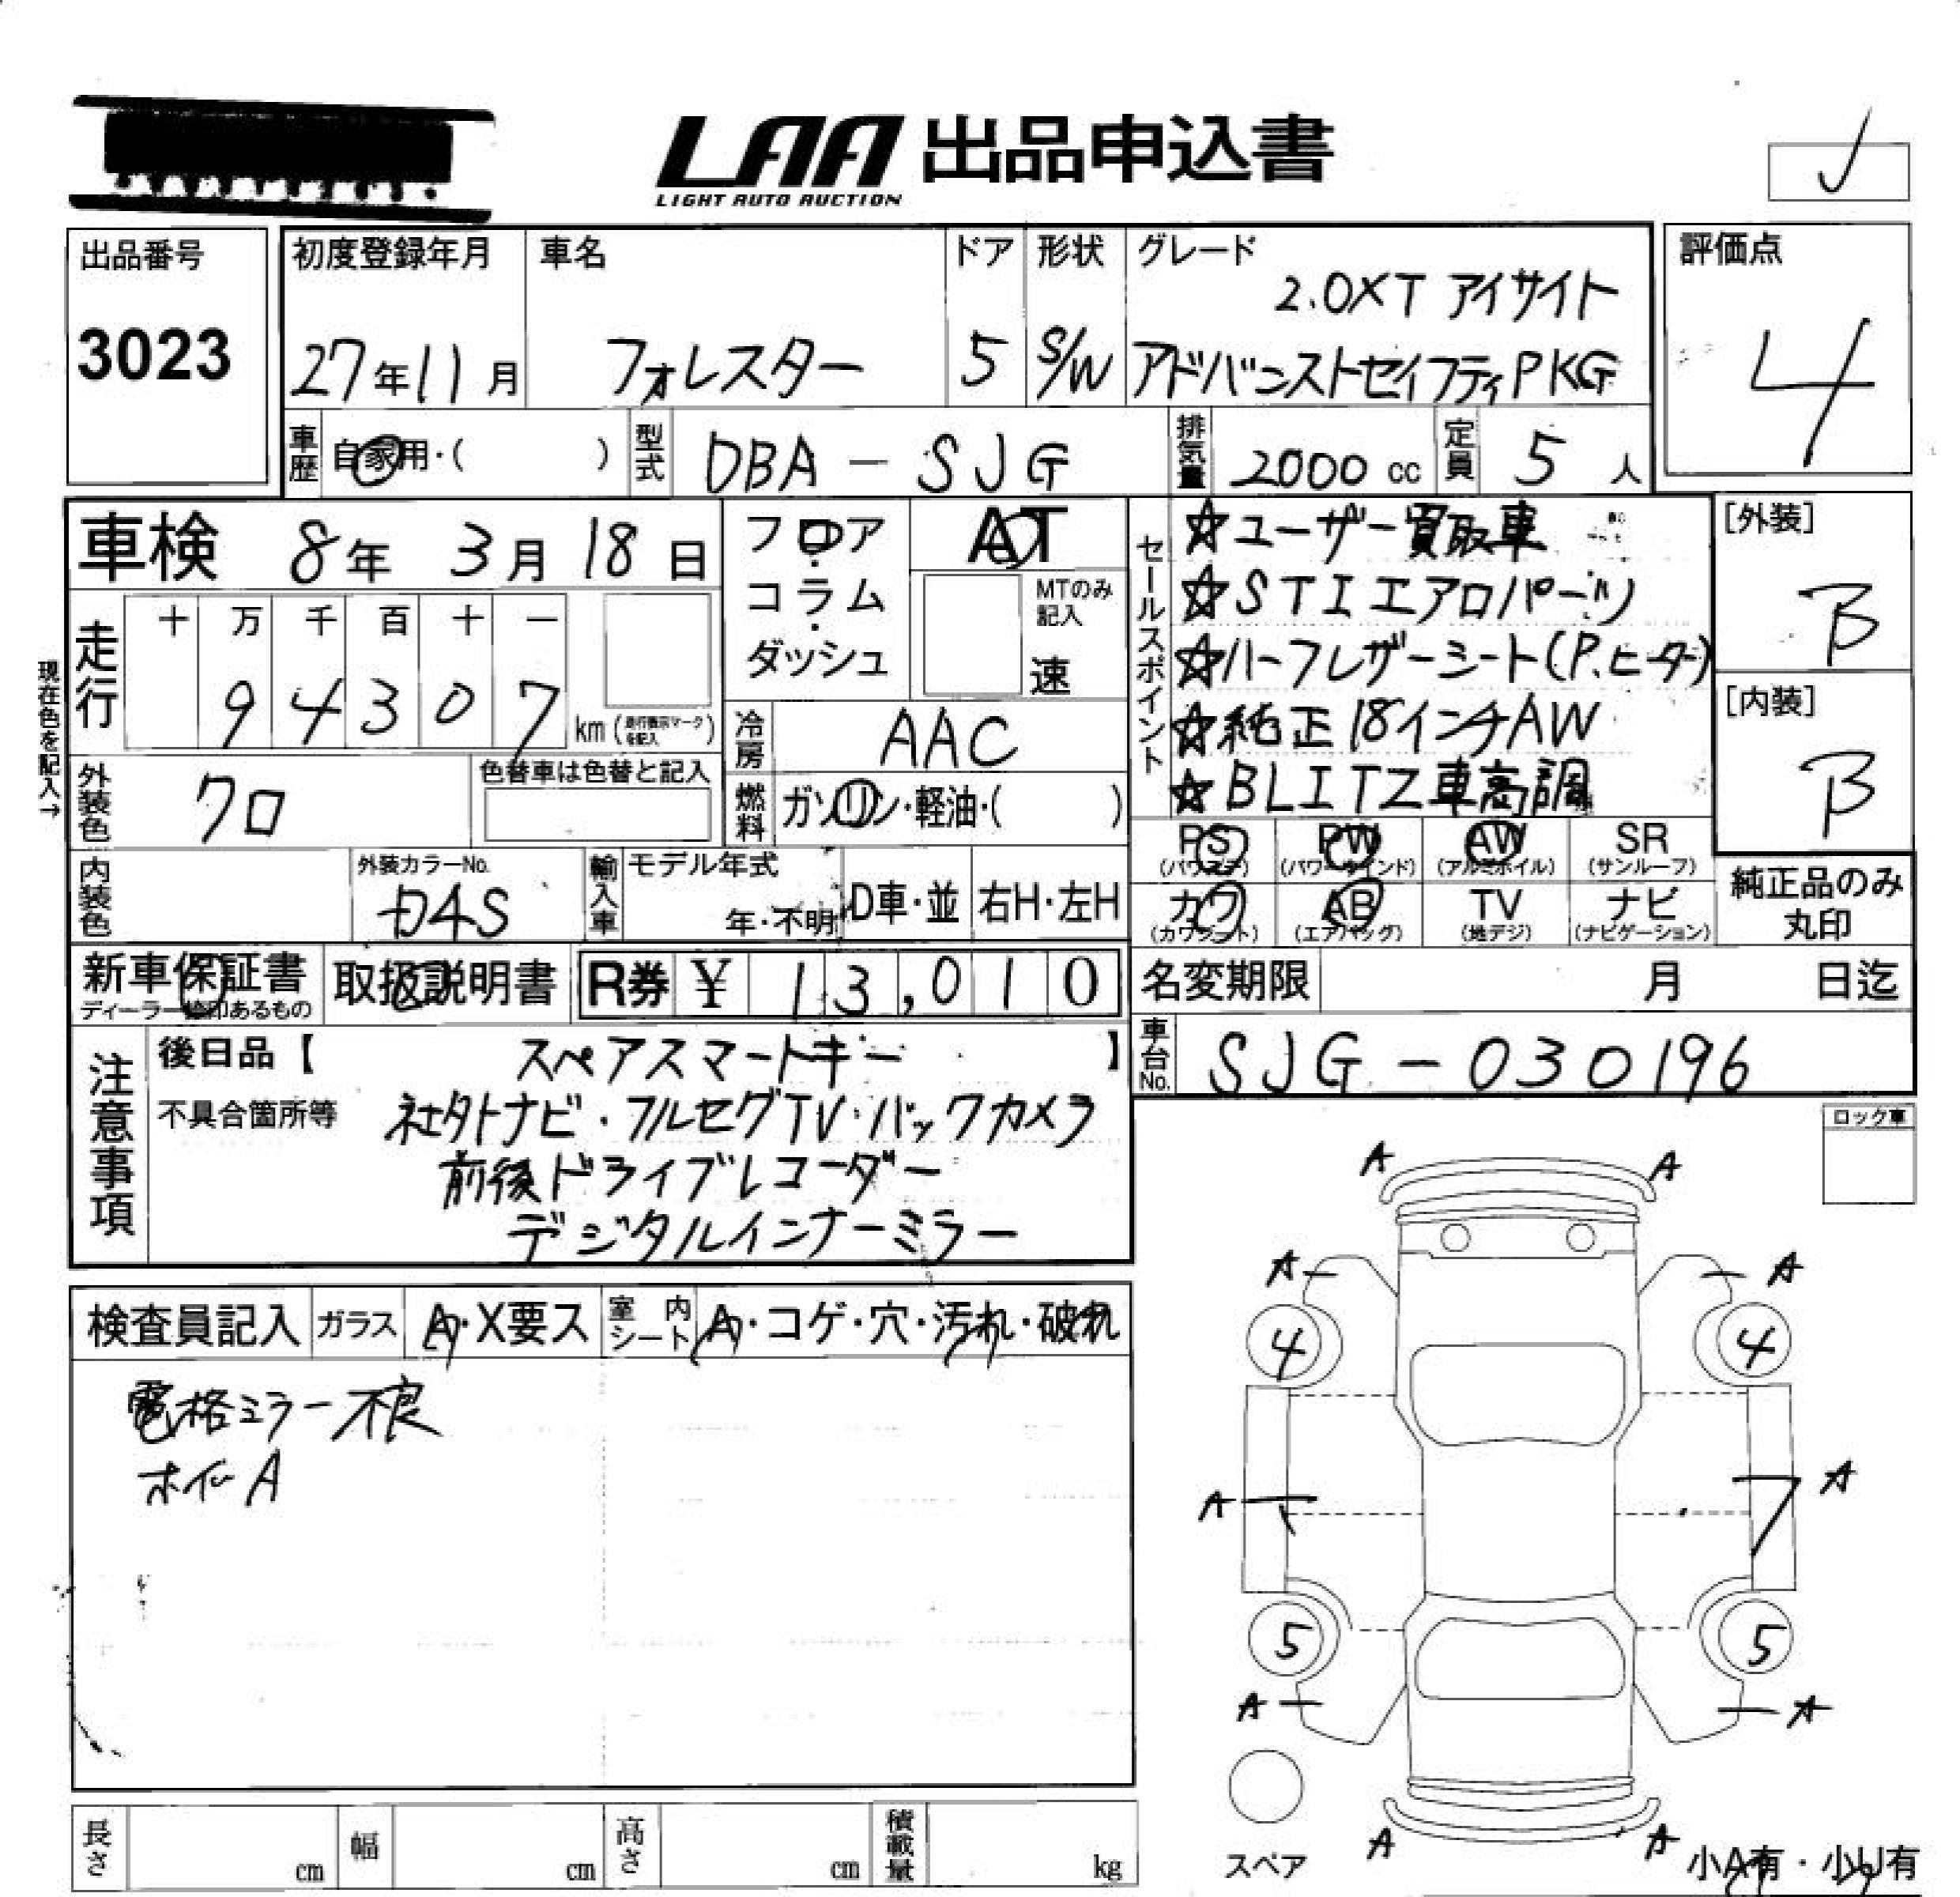 LAA 出品申込書
LIGHT AUTO AUCTION
出品番号
3023
初度登録年月
27年11月
車名
フォレスター
ドア
5
形状
S/W
グレード
2.0XT アイサイト
アドバンストセイフティPKG
評価点
4
車歴
自家用・( )
型式
DBA-SJG
排気量
2000 cc
定員
5 人
車検 8年 3月 18日
フロア・コラム・ダッシュ
AT
MTのみ記入
速
現在色を記入→
走行
十 万 千 百 十 一
9 4 3 0 7
km (走行表示マークを記入)
冷房
AAC
外装色
クロ
色替車は色替と記入
燃料
ガソリン・軽油・( )
内装色
外装カラーNo.
D4S
輸入車
モデル年式
年・不明
D車・並
右H・左H
セールスポイント
☆ユーザー買取車
☆STIエアロパーツ
☆ハーフレザーシート(P.ヒーター)
☆純正18インチAW
☆BLITZ車高調
[外装]
B
[内装]
B
PS (パワステ)
PW (パワーウインド)
AW (アルミホイル)
SR (サンルーフ)
カワ (カワシート)
AB (エアバッグ)
TV (地デジ)
ナビ (ナビゲーション)
純正品のみ丸印
新車保証書
ディーラー捺印あるもの
取扱説明書
R券 ¥ 13,010
名変期限 月 日迄
車台No.
SJG-030196
注意事項
後日品【 スペアスマートキー 】
不具合箇所等 社外ナビ・フルセグTV・バックカメラ
前後ドライブレコーダー
デジタルインナーミラー
ロック車
検査員記入
ガラス
A・X要ス
室内シート
A・コゲ・穴・汚れ・破れ
電格ミラー不良
ホイールA
A A
A A
4 4
A A
5 5
A A
A A
スペア
小A有・小U有
長さ cm
幅 cm
高さ cm
積載量 kg